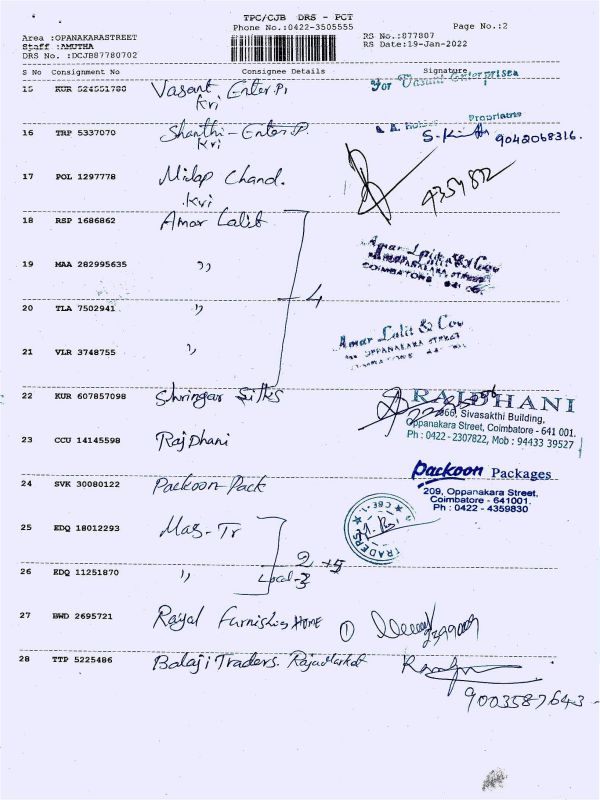 TPC/CJB DRS - PCT
Phone No.:0422-3505555
Page No.:2
Area :OPANAKARASTREET
Staff :AMUTHA
DRS No. :DCJB87780702
RS No.:877807
RS Date:19-Jan-2022
S No Consignment No Consignee Details Signature
15 KUR 524551780 Vasant Enter Pi
Kri
For Vasant Enterprises
Propriatrix
16 TRP 5337070 Shanthi - Enter P.
Kri
9042068316.
17 POL 1297778 Milap Chand.
Kri
4359872
18 RSP 1686862 Amar Lalit
19 MAA 282995635 ,,
Amar Lalit & Cov
OPPANAKARA STREET
COIMBATORE
4
20 TLA 7502941 ,,
21 VLR 3748755 ,,
Amar Lalit & Cov
OPPANAKARA STREET
22 KUR 607857098 Shringar Silks
RAJDHANI
866, Sivasakthi Building,
Oppanakara Street, Coimbatore - 641 001.
Ph : 0422 - 2307822, Mob : 94433 39527
23 CCU 14145598 RajDhani
24 SVK 30080122 Packoon Pack
Packoon Packages
209, Oppanakara Street,
Coimbatore - 641001.
Ph : 0422 - 4359830
25 EDQ 18012293 Mas - Tr
TRADERS
CBE-1
2 +5
Local -3
26 EDQ 11251870 ,,
27 BWD 2695721 Royal Furnishing HOME 1
28 TTP 5225486 Balaji Traders. Rajamarket
9003587643